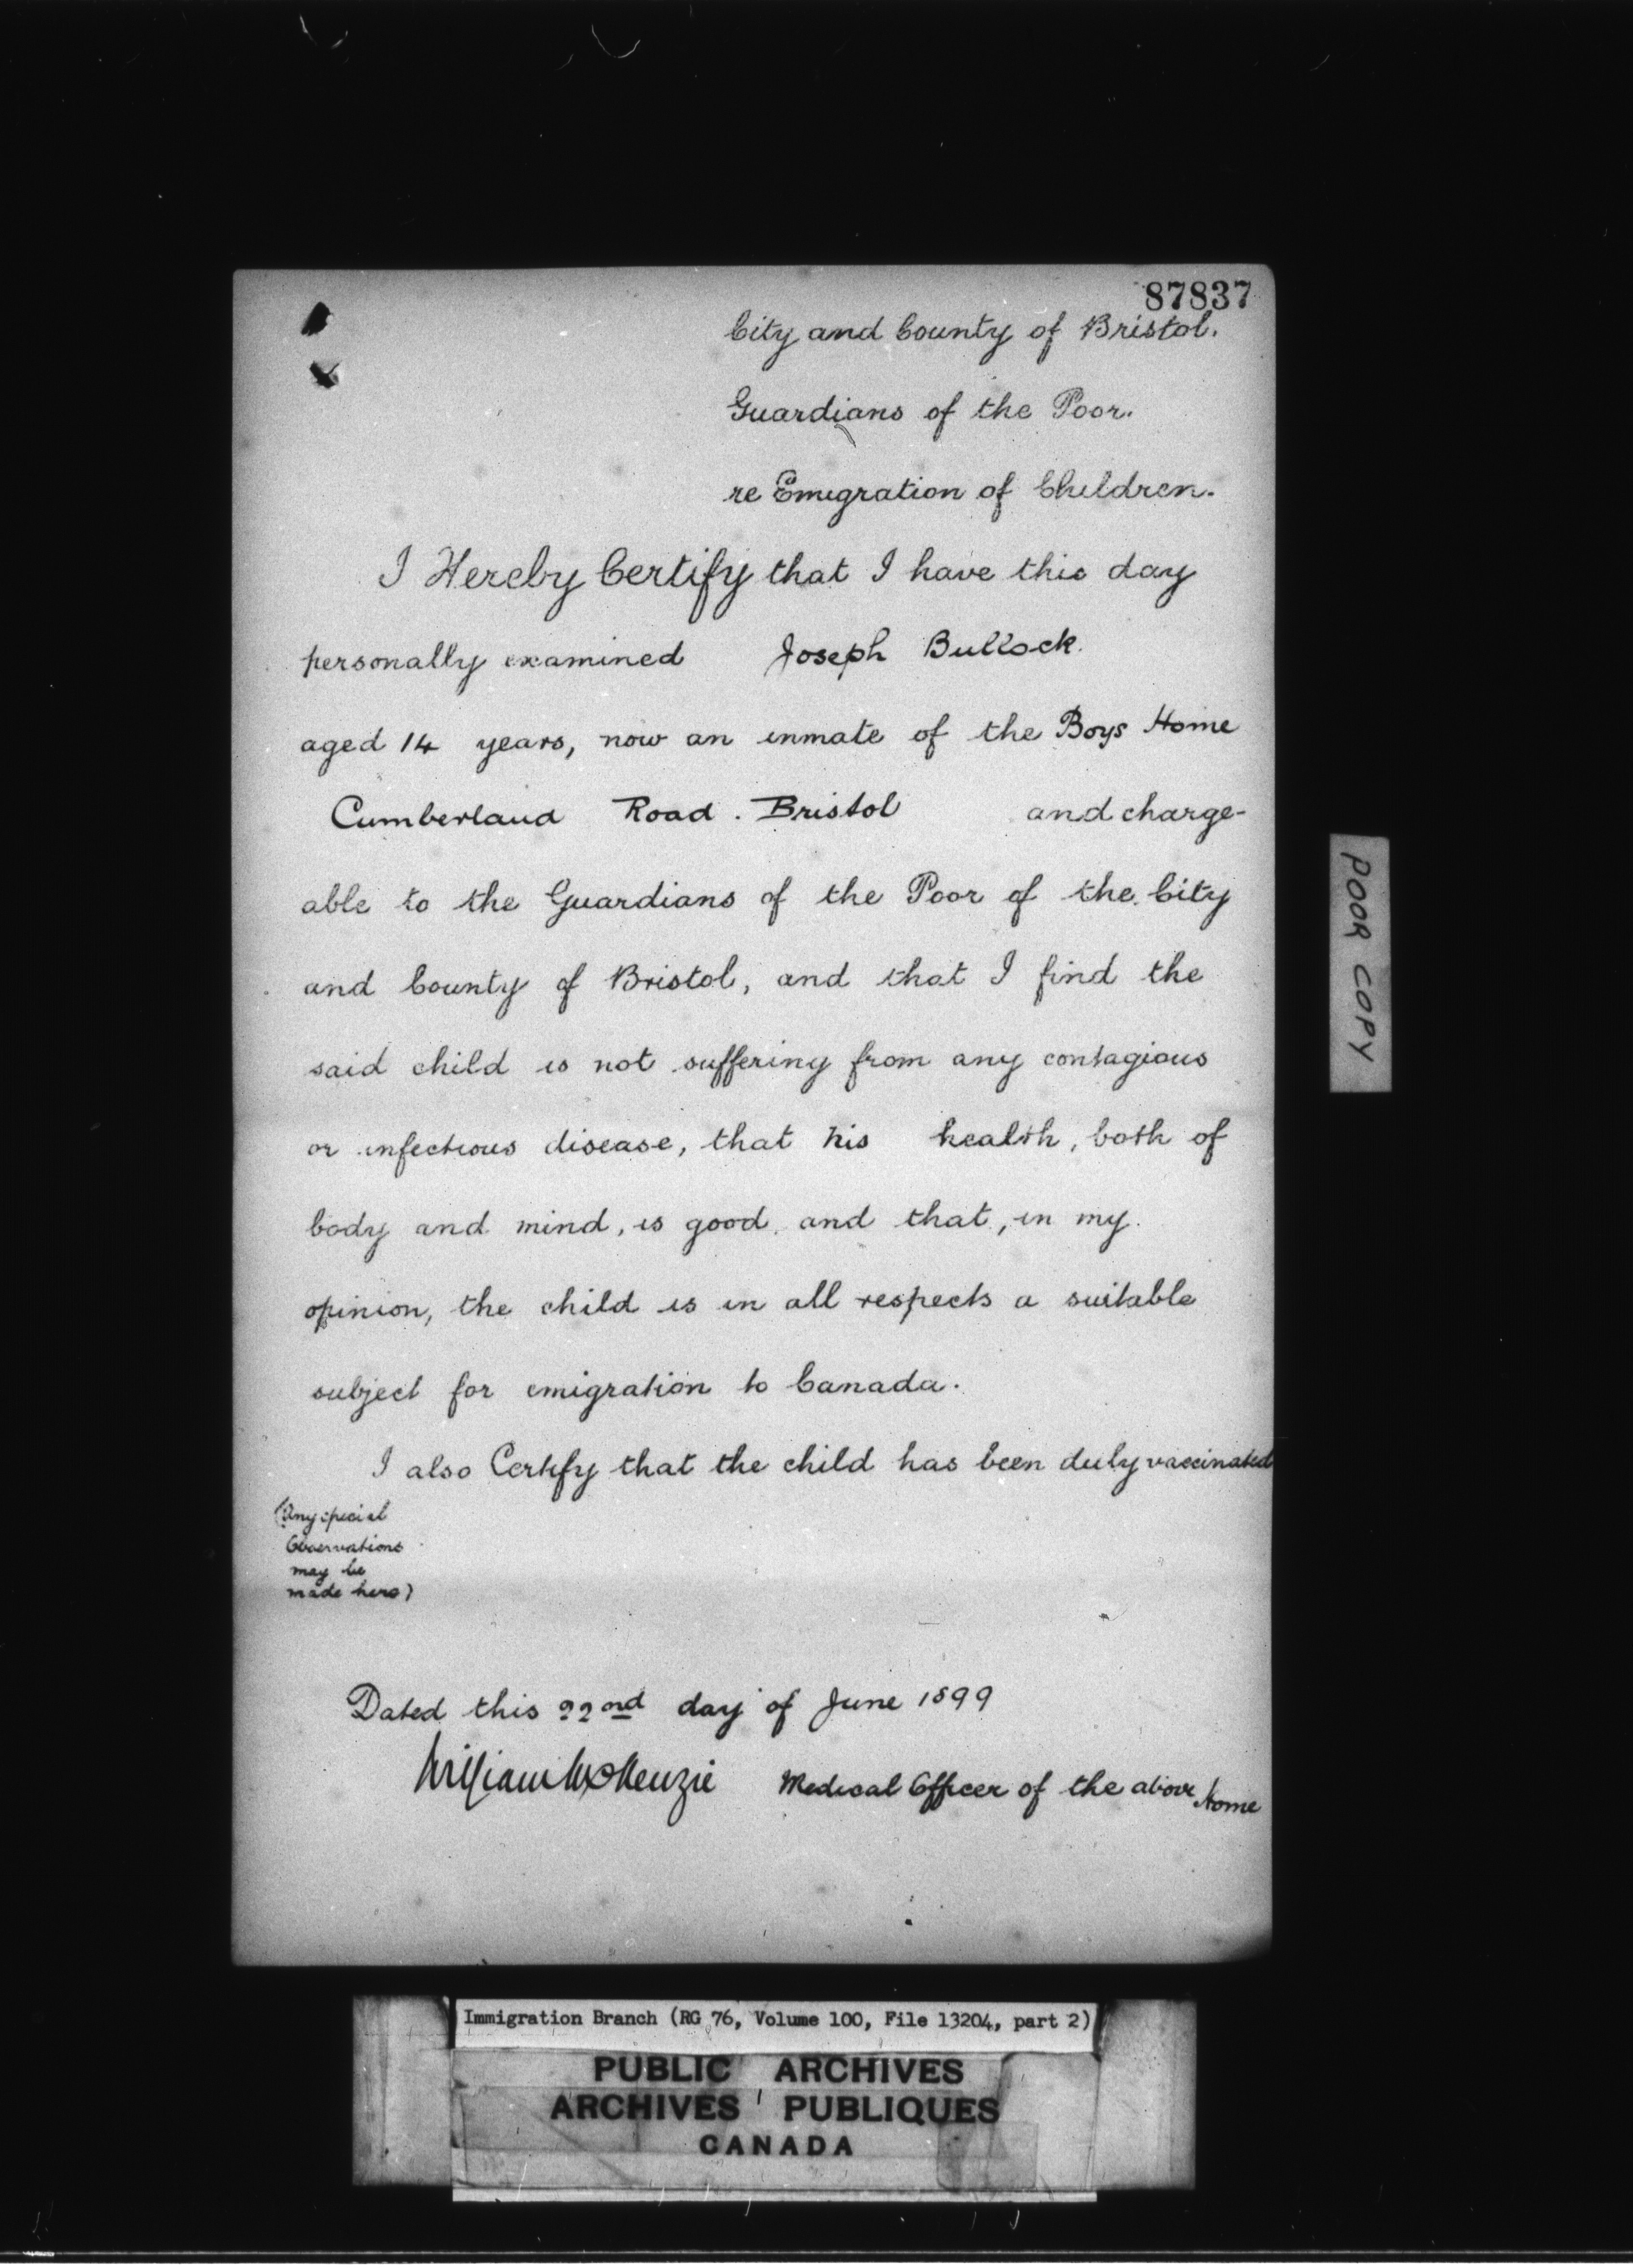 87837
City and County of Bristol.
Guardians of the Poor.
re Emigration of Children.
I Hereby Certify that I have this day
personally examined Joseph Bullock.
aged 14 years, now an inmate of the Boys Home
Cumberland Road. Bristol and charge-
able to the Guardians of the Poor of the City
and County of Bristol, and that I find the
said child is not suffering from any contagious
or infectious disease, that his health, both of
body and mind, is good, and that, in my
opinion, the child is in all respects a suitable
subject for emigration to Canada.
I also Certify that the child has been duly vaccinated
(Any special
Observations
may be
made here)
Dated this 22nd day of June 1899
William McKenzie Medical Officer of the above Home
POOR COPY
Immigration Branch (RG 76, Volume 100, File 13204, part 2)
PUBLIC ARCHIVES
ARCHIVES PUBLIQUES
CANADA